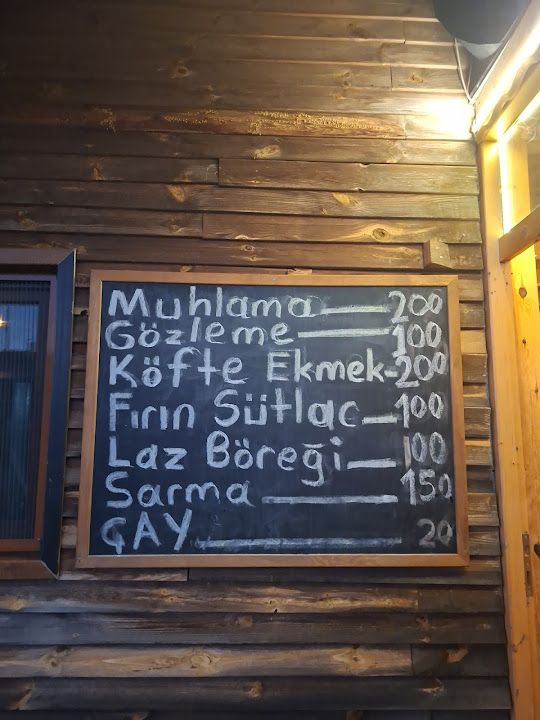 Muhlama 200
Gözleme 100
Köfte Ekmek 200
Fırın Sütlaç 100
Laz Böreği 100
Sarma 150
ÇAY 20